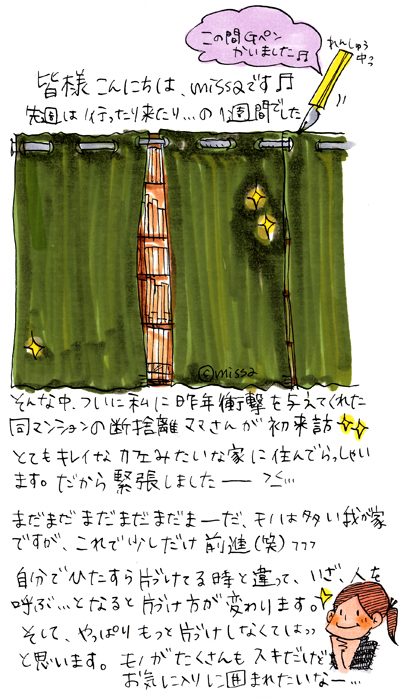 この間Gペン
かいました♫
れんしゅう
中っ
皆様こんにちは、missaです♫
先週は行ったり来たり…の1週間でした
©missa
そんな中、ついに私に昨年衝撃を与えてくれた
同マンションの断捨離ママさんが初来訪
とてもキレイなカフェみたいな家に住んでらっしゃい
ます。だから緊張しましたー
まだまだまだまだまだまーだ、モノは多い我が家
ですが、これで少しだけ前進(笑)フフフ
自分でひたすら片づけてる時と違って、いざ、人を
呼ぶ…となると片づけ方が変わります。
そして、やっぱりもっと片づけしなくてはっ
と思います。モノがたくさんもスキだけど
お気に入りに囲まれたいなー…